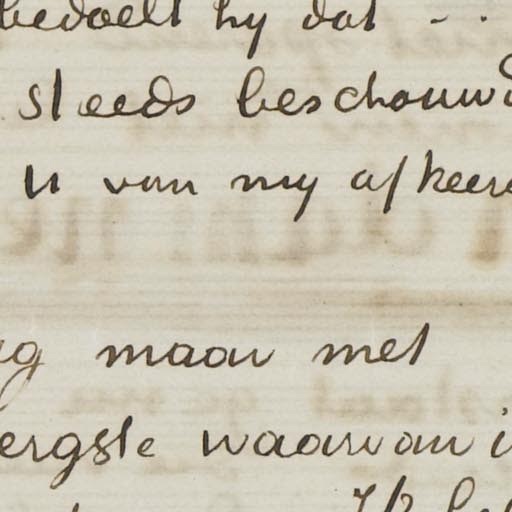 bedoelt hy dat - .
steeds beschouwd
u van my afkeer
maar met
ergste waarvan i
Ik